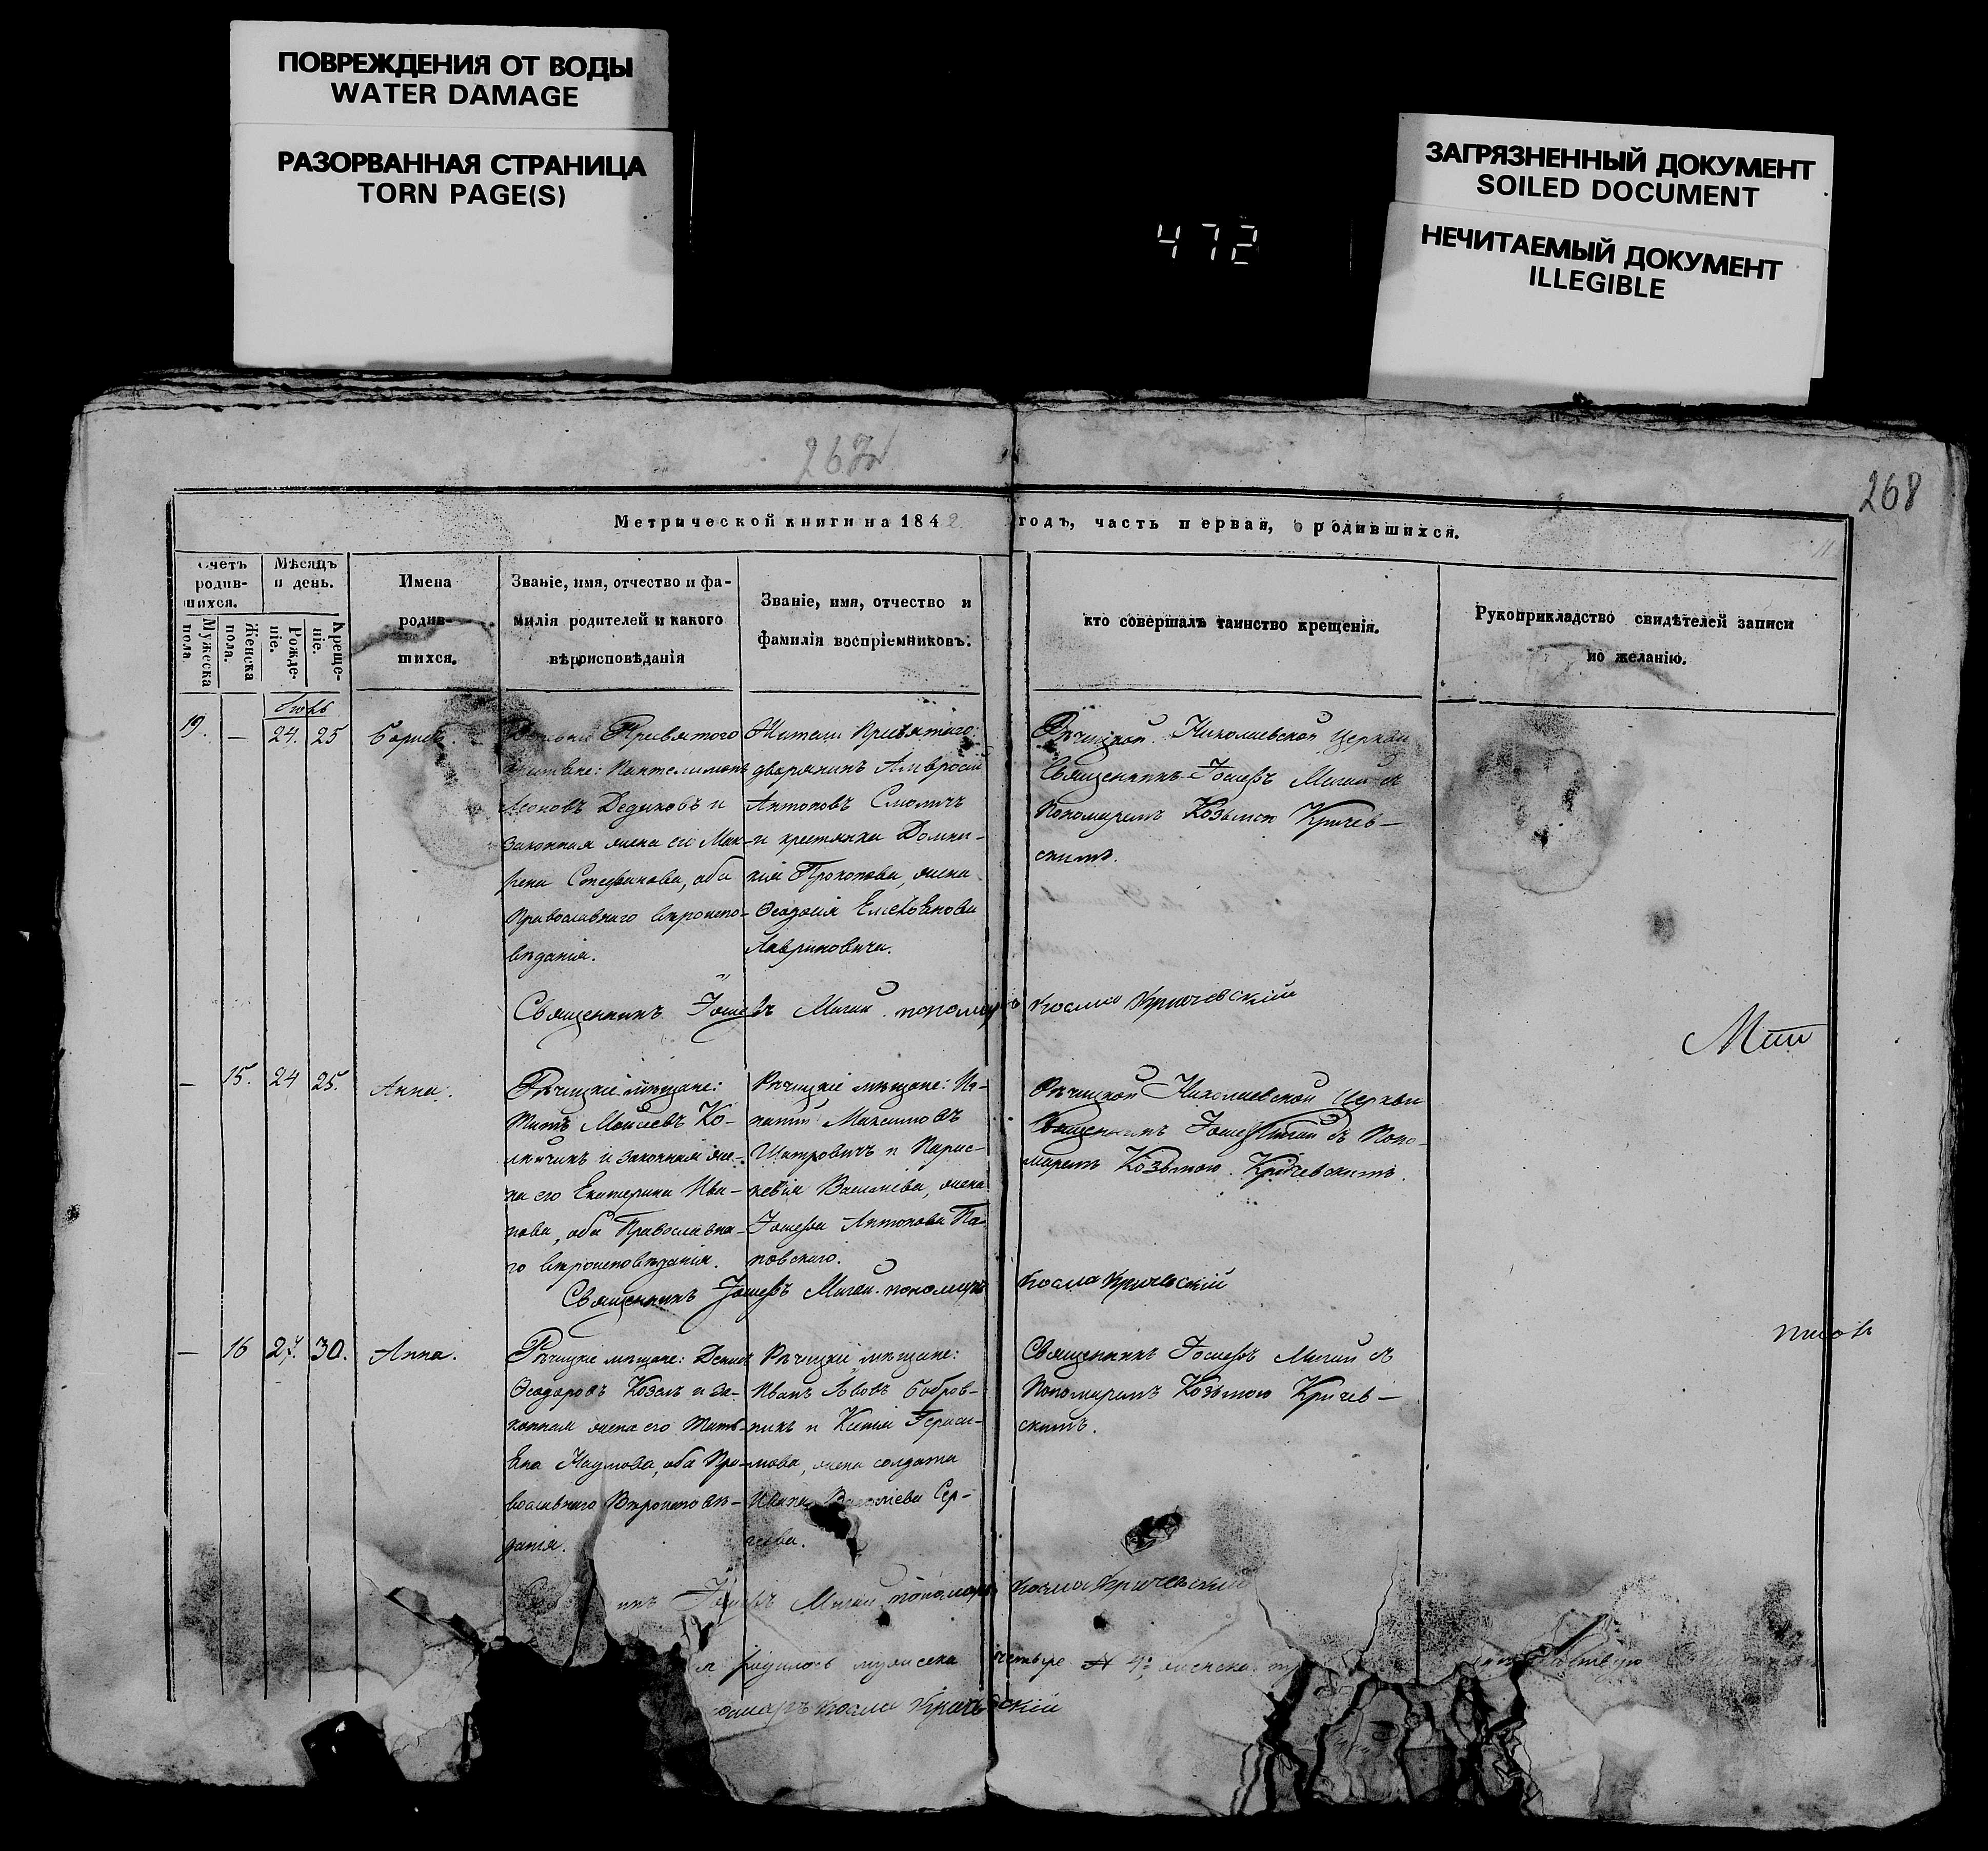 ПОВРЕЖДЕНИЯ ОТ ВОДЫ
WATER DAMAGE
РАЗОРВАННАЯ СТРАНИЦА
TORN PAGE(S)
472
ЗАГРЯЗНЕННЫЙ ДОКУМЕНТ
SOILED DOCUMENT
НЕЧИТАЕМЫЙ ДОКУМЕНТ
ILLEGIBLE
268
Метрической книги на 1842 годъ, часть первая, о родившихся.
Счетъ родив-шихся.
Мужеска пола.
Женска пола.
Мѣсяцъ и день.
Рожде-ніе.
Креще-ніе.
Имена
родив-
шихся.
Званіе, имя, отчество и фа-
милія родителей и какого
вѣроисповѣданія
Званіе, имя, отчество и
фамилія воспріемниковъ.
кто совершалъ таинство крещенія.
Рукоприкладство свидѣтелей записи
по желанію.
19. — 24. 25 Борисъ.
Пресвятого
Пантелимонъ
Леоновъ Дедиковъ и
законная жена его Мак-
рена Стефанова, оба
Православнаго вѣроиспо-
вѣданія.
Жители Пресвятого:
дворянинъ Амвросій
Антоновъ Смоличъ
и крестьянка Домни-
кія Прокопова, жена
Ѳеодосія Емельянова
Лавриновича.
Рѣчицкой Николаевской церкви
Священникъ Іосифъ Мигай съ
Пономаремъ Козьмою Кричев-
скимъ.
Священникъ Іосифъ Мигай. пономарь Косма Кричевскій
— 15. 24 25. Анна.
Рѣчицкіе мѣщане:
Титъ Моисеевъ Ко-
и законная же-
на его Екатерина Ива-
нова, оба Православна-
го вѣроисповѣданія.
Рѣчицкіе мѣщане: Иг-
натій Максимовъ
Шатровичъ и Парас-
кевія Василіева, жена
Іосифа Антонова Па-
повскаго.
Рѣчицкой Николаевской церкви
Священникъ Іосифъ Мигай съ Поно-
маремъ Козьмою Кричевскимъ.
Священникъ Іосифъ Мигай. пономарь Косма Кричевскій
— 16 27. 30. Анна.
Рѣчицкіе мѣщане: Денисъ
Ѳеодоровъ Козелъ и за-
конная жена его Тать-
яна Наумова, оба Пра-
вославнаго Вѣроисповѣ-
данія.
Рѣчицкіе мѣщане:
Иванъ Бобров-
никъ и Ксенія Гераси-
мова, жена солдата
Ивана Василіева Сер-
геева.
Священникъ Іосифъ Мигай съ
Пономаремъ Козьмою Кричев-
скимъ.
Іосифъ Мигай пономарь Косма Кричевскій
родилось мужеска четыре 4; женска
Косма Кричевскій